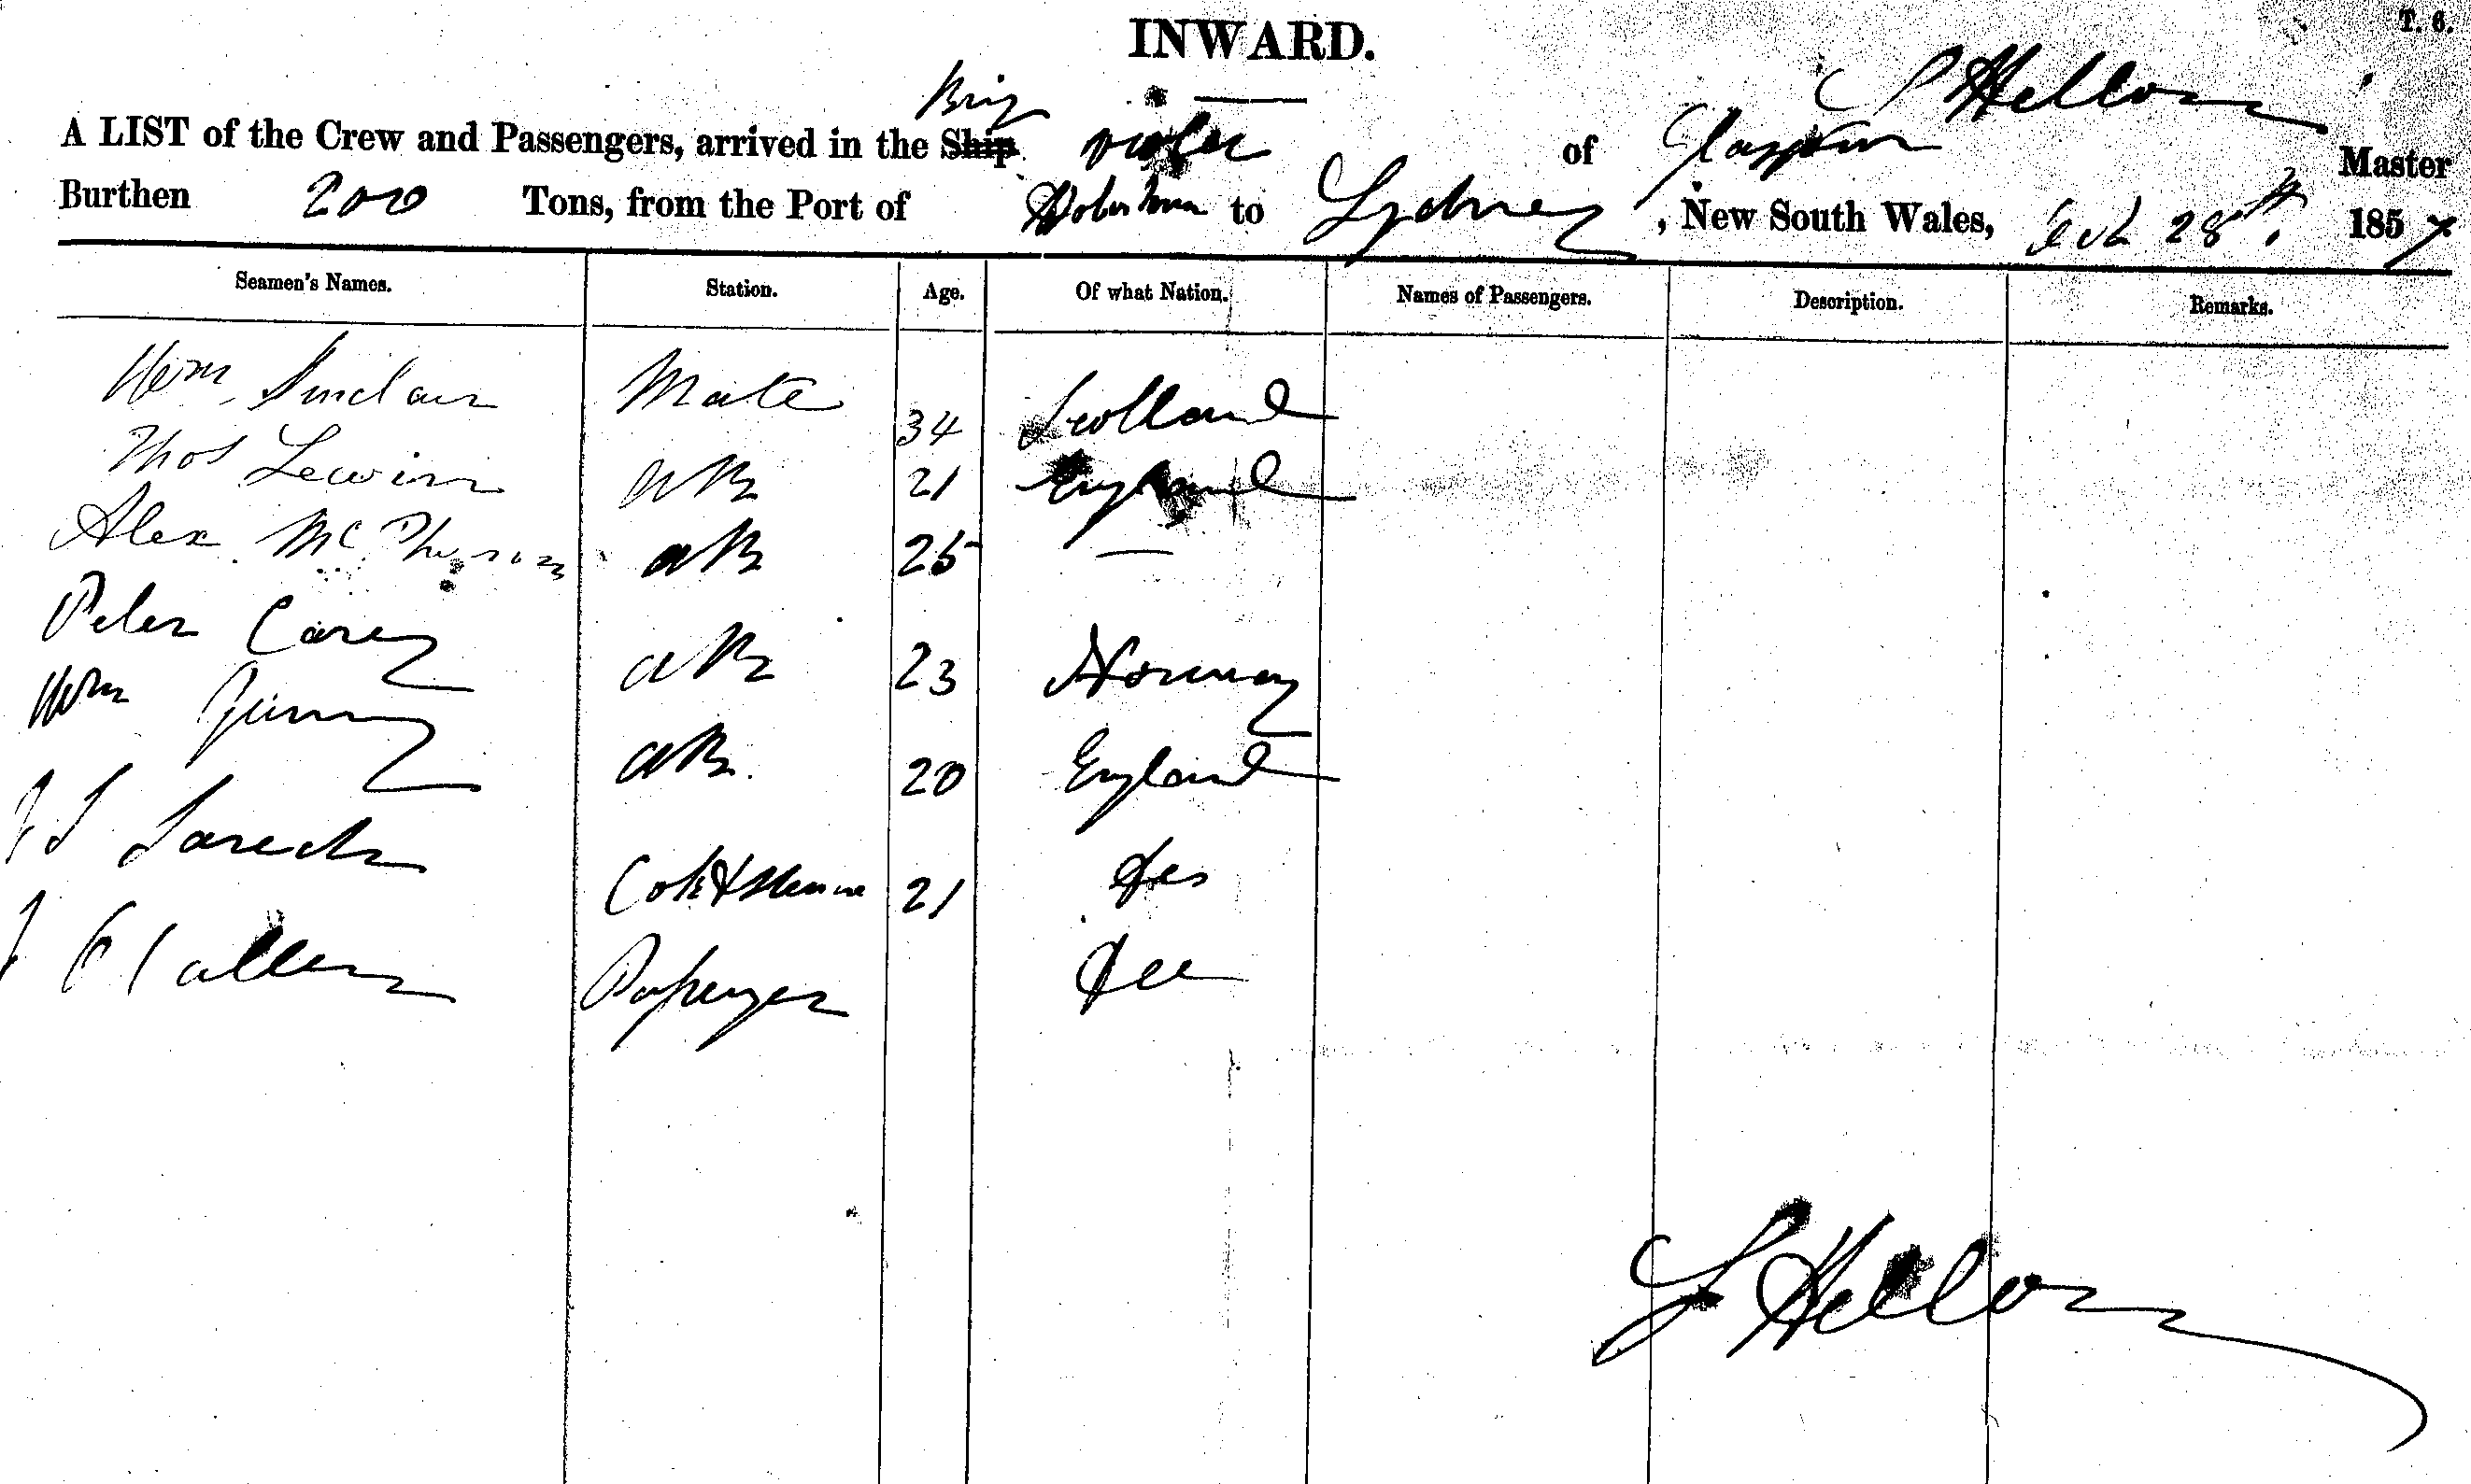 T. 6.
INWARD.
Brig S Hellon
A LIST of the Crew and Passengers, arrived in the Ship of Glasgow Master
Burthen 200 Tons, from the Port of Hobartown to Sydney, New South Wales, 28th 1857
Seamen's Names. Station. Age. Of what Nation. Names of Passengers. Description. Remarks.
Wm Sinclair Mate 34 Scotland
Thos Lewin AB 21 England
Alex McPherson AB 25 —
Peter Carey AB 23 Norway
Wm AB. 20 England
Cok & 21
Passenger
S Hellon